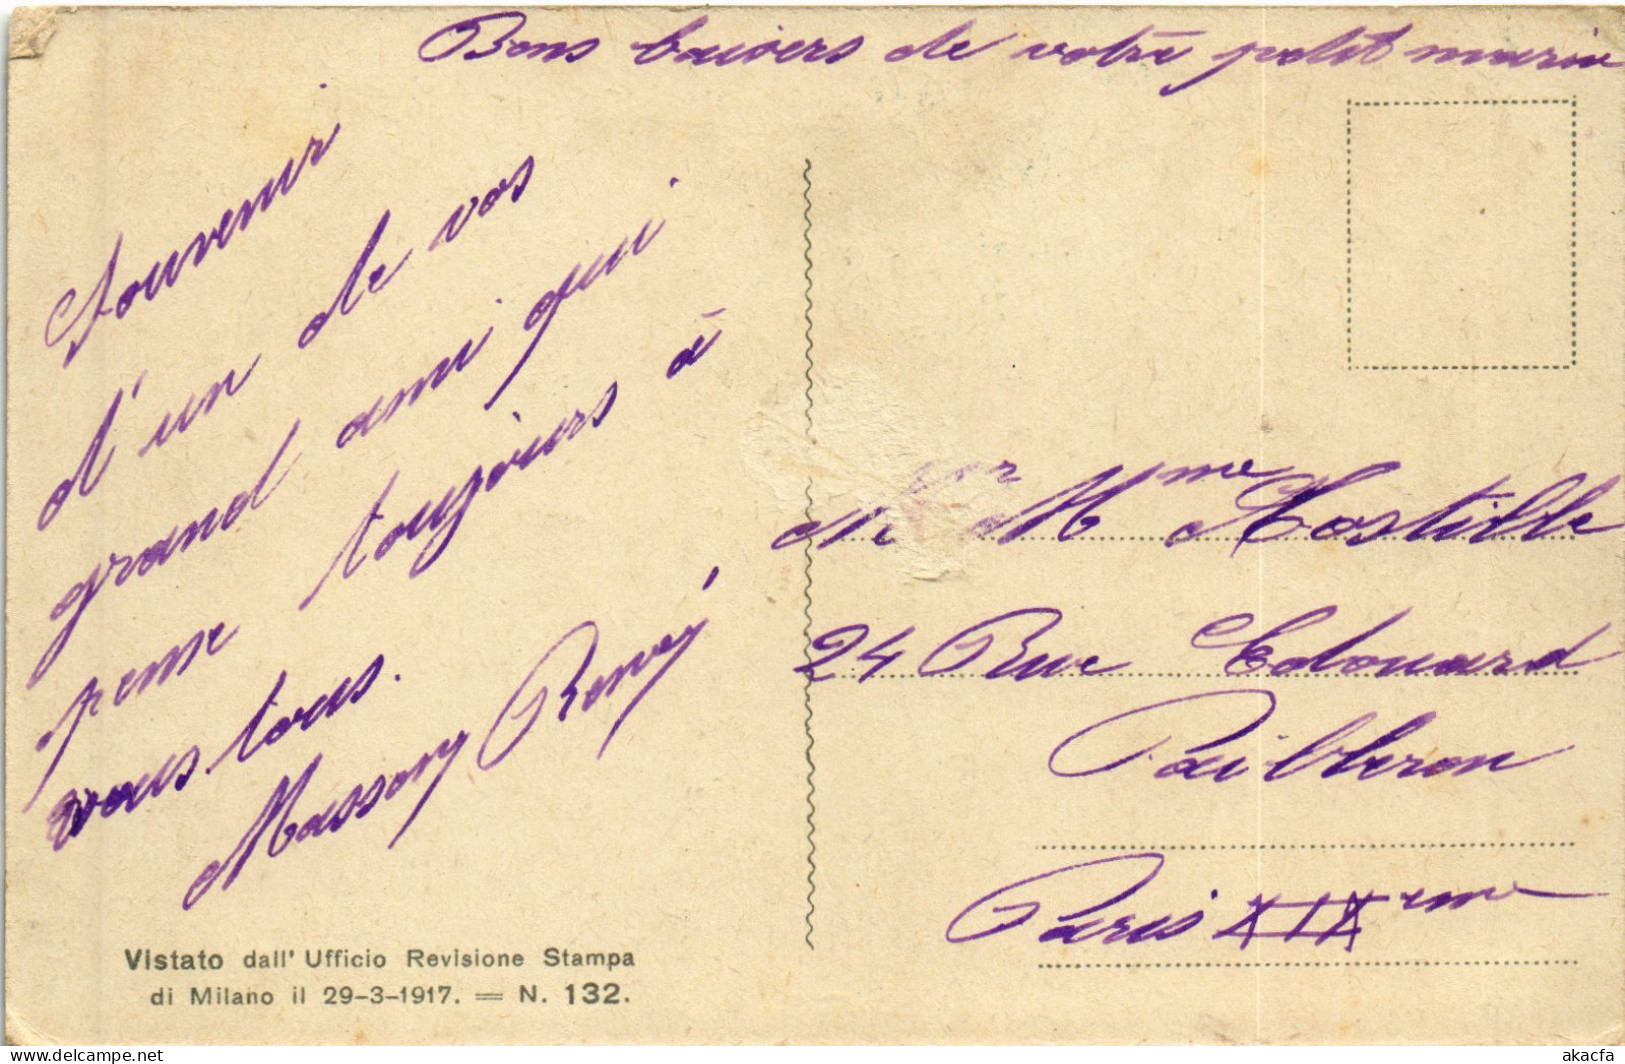 Bons baisers de votre petit marin
Souvenir
d'un de vos
grand ami qui
pense toujours à
vous tous.
Massony René
M et Mme Hostille
24 Rue Edouard
Pailleron
Paris XIXeme
Vistato dall' Ufficio Revisione Stampa
di Milano il 29-3-1917. = N. 132.
akacfa